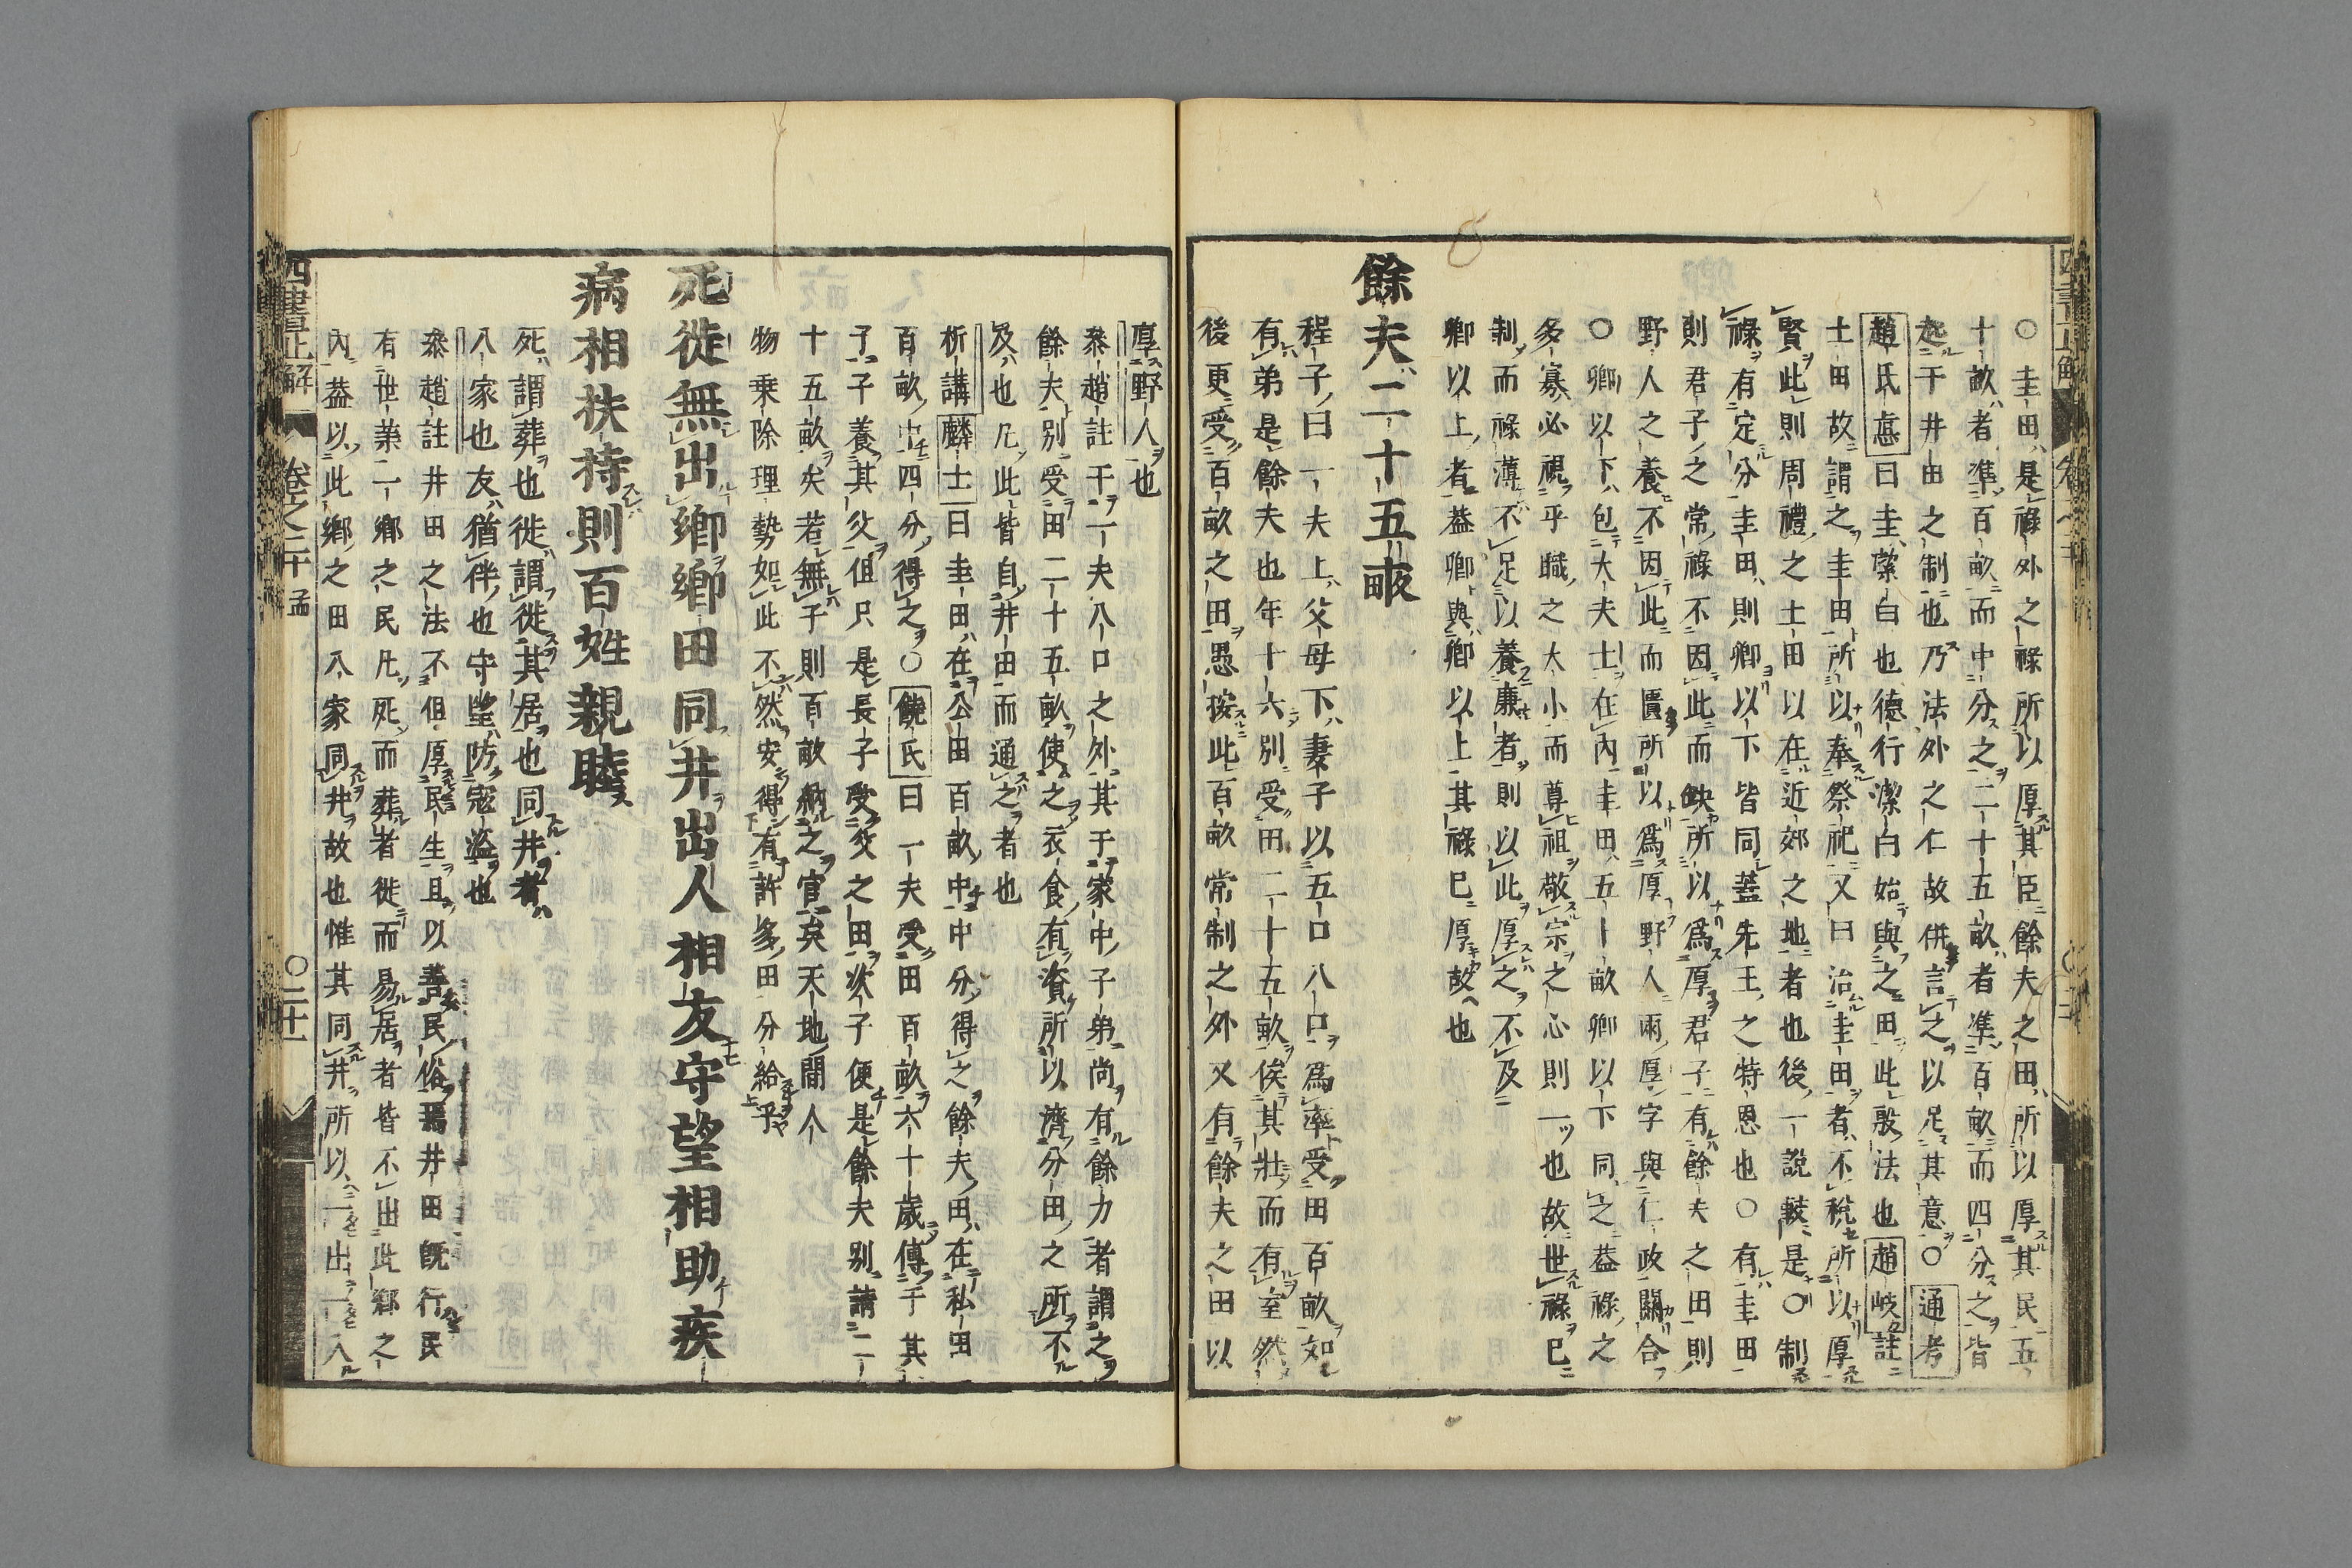 ○圭田是祿外之祿所以厚其臣餘夫之田所以厚其民五
十畝者準百畝而中分之二十五畝者準百畝而四分之皆
起于井田之制也乃法外之仁故併言之以足其意○通考
趙氏悳曰圭潔白也德行潔白始與之田此殷法也趙岐註
士田故謂之圭田所以奉祭祀又曰治圭田者不稅所以厚
賢此則周禮之士田以在近郊之地者也後一說較是○制
祿有定分圭田則卿以下皆同蓋先王之特恩也○有圭田
則君子之常祿不因此而缺所以爲厚君子有餘夫之田則
野人之養不因此而匱所以爲厚野人兩厚字與仁政關合
○卿以下包大夫士在內圭田五十畝卿以下同之葢祿之
多寡必視乎職之大小而尊祖敬宗之心則一也故世祿已
制而祿薄不足以養廉者則以此厚之不及
卿以上者葢卿與卿以上其祿已厚故也
餘夫二十五畝
程子曰一夫上父母下妻子以五口八口爲率受田百畝如
有弟是餘夫也年十六別受田二十五畝俟其壯而有室然
後更受百畝之田愚按此百畝常制之外又有餘夫之田以
厚野人也
叅趙註于一夫八口之外其于家中子弟尚有餘力者謂之
餘夫別受田二十五畝使之衣食有資所以濟分田之所不
及也凡此皆自井田而通之者也
析講麟士曰圭田在公田百畝中中分得之餘夫田在私田
百畝中四分得之○饒氏曰一夫受田百畝六十歲傳于其
子子養其父但只是長子受父之田次子便是餘夫別請二
十五畝矣若無子則百畝納之官矣天地間人
物乘除理勢如此不然安得有許多田分給乎
死徙無出鄉鄉田同井出人相友守望相助疾
病相扶持則百姓親睦
死謂葬也徙謂徙其居也同井者
八家也友猶伴也守望防寇盜也
叅趙註井田之法不但厚民生且以善民俗焉井田旣行民
有世業一鄉之民凡死而葬者徙而易居者皆不出此鄉之
內葢以此鄉之田八家同井故也惟其同井所以一出一入
四書正解
卷之二十
孟
○二十一